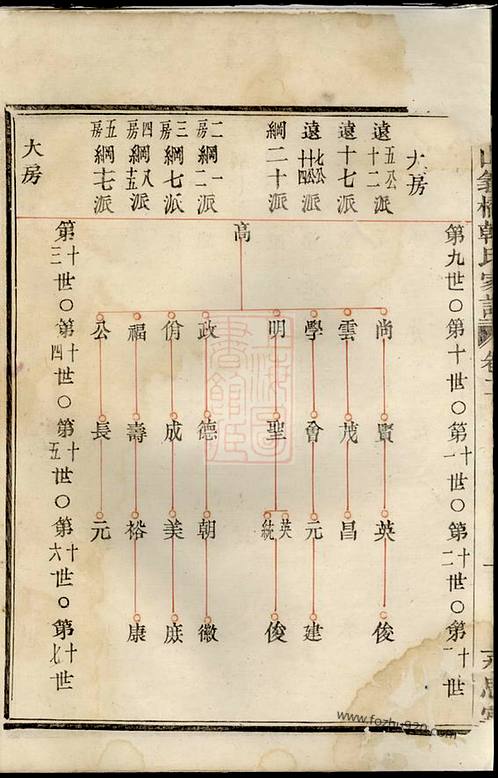 韓氏家譜
卷二
大房
遠五公十二派
遠十七派
遠七公十四公派
綱二十派
二房綱一二派
三房綱七派
四房綱八十五派
五房綱十七派
大房
第九世○第十世○第十一世○第十二世○第十一世
高
尚 雲 學 明 政 佾 福 公
賢 茂 會 聖 德 成 壽 長
英 昌 元 英 統 朝 美 裕 元
俊 建 俊 徽 康
第十三世○第十四世○第十五世○第十六世○第十七世
上海圖書館藏
www.fozhu920.com